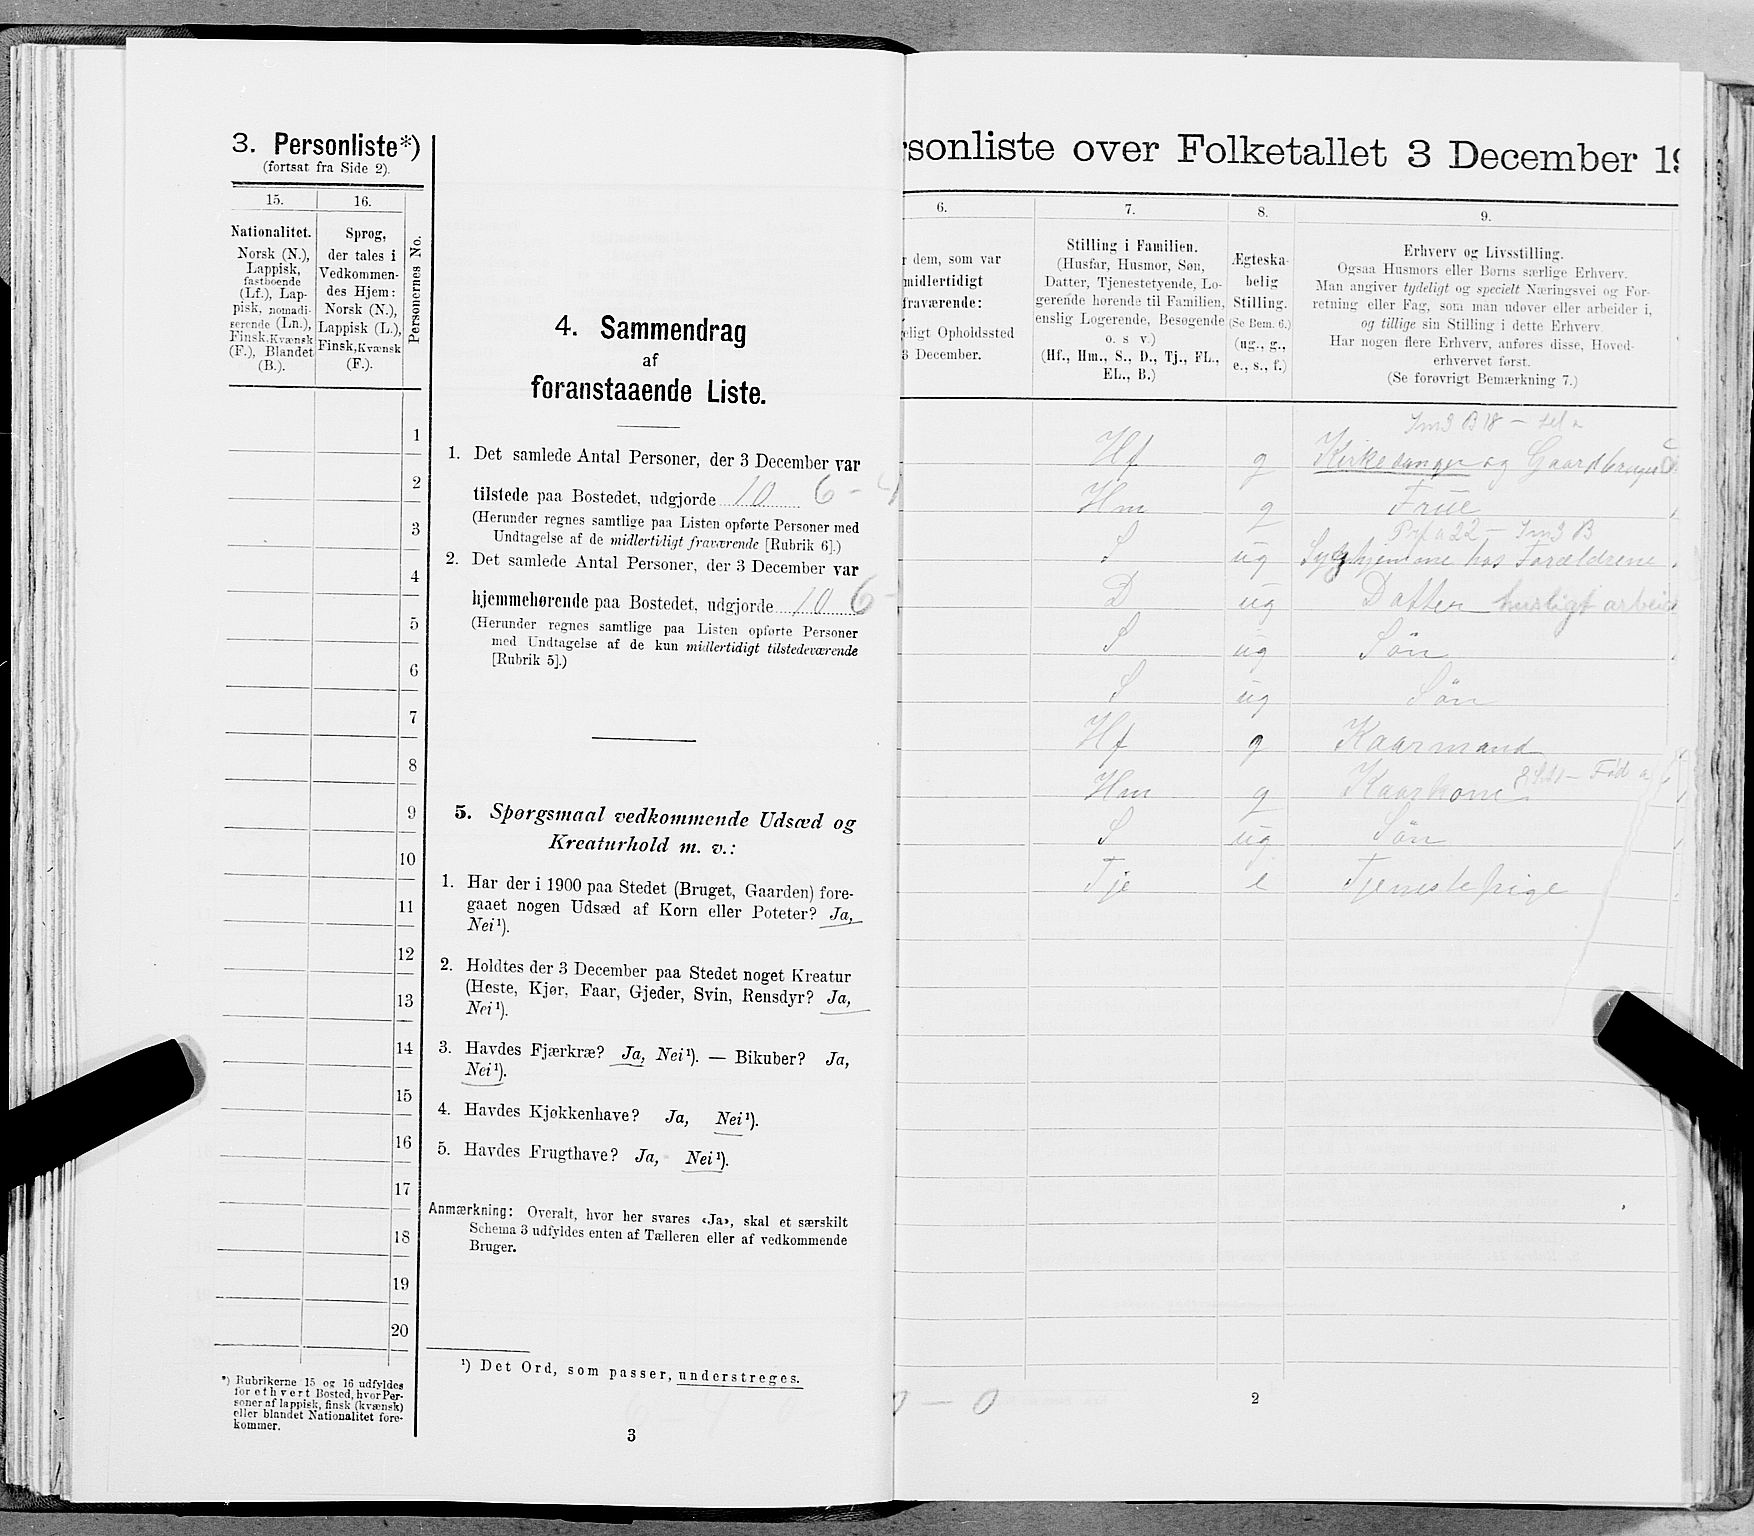 3. Personliste*)
(fortsat fra Side 2).
15.
16.
Nationalitet.
Norsk (N.),
Lappisk,
fastboende
(Lf.), Lap-
pisk, nomadi-
serende (Ln.),
Finsk, Kvænsk
(F.), Blandet
(B.).
Sprog,
der tales i
Vedkommen-
des Hjem:
Norsk (N.),
Lappisk (L.),
Finsk, Kvænsk
(F.).
Personernes No.
1
2
3
4
5
6
7
8
9
10
11
12
13
14
15
16
17
18
19
20
*) Rubrikerne 15 og 16 udfyldes
for ethvert Bosted, hvor Per-
soner af lappisk, finsk (kvænsk)
eller blandet Nationalitet fore-
kommer.
4. Sammendrag
af
foranstaaende Liste.
1. Det samlede Antal Personer, der 3 December var
tilstede paa Bostedet, udgjorde 10 6 -
(Herunder regnes samtlige paa Listen opførte Personer med
Undtagelse af de midlertidigt fraværende [Rubrik 6].)
2. Det samlede Antal Personer, der 3 December var
hjemmehørende paa Bostedet, udgjorde 10 6 -
(Herunder regnes samtlige paa Listen opførte Personer
med Undtagelse af de kun midlertidigt tilstedeværende
[Rubrik 5].)
5. Spørgsmaal vedkommende Udsæd og
Kreaturhold m. v.:
1. Har der i 1900 paa Stedet (Bruget, Gaarden) fore-
gaaet nogen Udsæd af Korn eller Poteter? Ja,
Nei¹).
2. Holdtes der 3 December paa Stedet noget Kreatur
(Heste, Kjør, Faar, Gjeder, Svin, Rensdyr? Ja,
Nei¹).
3. Havdes Fjærkræ? Ja, Nei¹). — Bikuber? Ja,
Nei¹).
4. Havdes Kjøkkenhave? Ja, Nei¹).
5. Havdes Frugthave? Ja, Nei¹).
Anmærkning: Overalt, hvor her svares «Ja», skal et særskilt
Schema 3 udfyldes enten af Tælleren eller af vedkommende
Bruger.
¹) Det Ord, som passer, understreges.
3
rsonliste over Folketallet 3 December 19
6.
7.
8.
9.
r dem, som var
midlertidigt
fraværende:
eligt Opholdssted
3 December.
Stilling i Familien.
(Husfar, Husmor, Søn,
Datter, Tjenestetyende, Lo-
gerende hørende til Familien,
enslig Logerende, Besøgende
o. s v.)
(Hf., Hm., S., D., Tj., FL.,
EL., B.)
Ægteska-
belig
Stilling.
(Se Bem. 6.)
(ug., g.,
e., s., f.)
Erhverv og Livsstilling.
Ogsaa Husmors eller Børns særlige Erhverv.
Man angiver tydeligt og specielt Næringsvei og For-
retning eller Fag, som man udøver eller arbeider i,
og tillige sin Stilling i dette Erhverv.
Har nogen flere Erhverv, anføres disse, Hoved-
erhvervet først.
(Se forøvrigt Bemærkning 7.)
Hf g Kirkesanger og Gaardbruger
Hm g Frue
S ug Syg hjemme hos Forældrene
D ug Datter husligt arbeide
S ug Søn
S ug Søn
Hf g Kaarmand
Hm g Kaarkone
S ug Søn
Tje e Tjenestepige
0 - 0
2